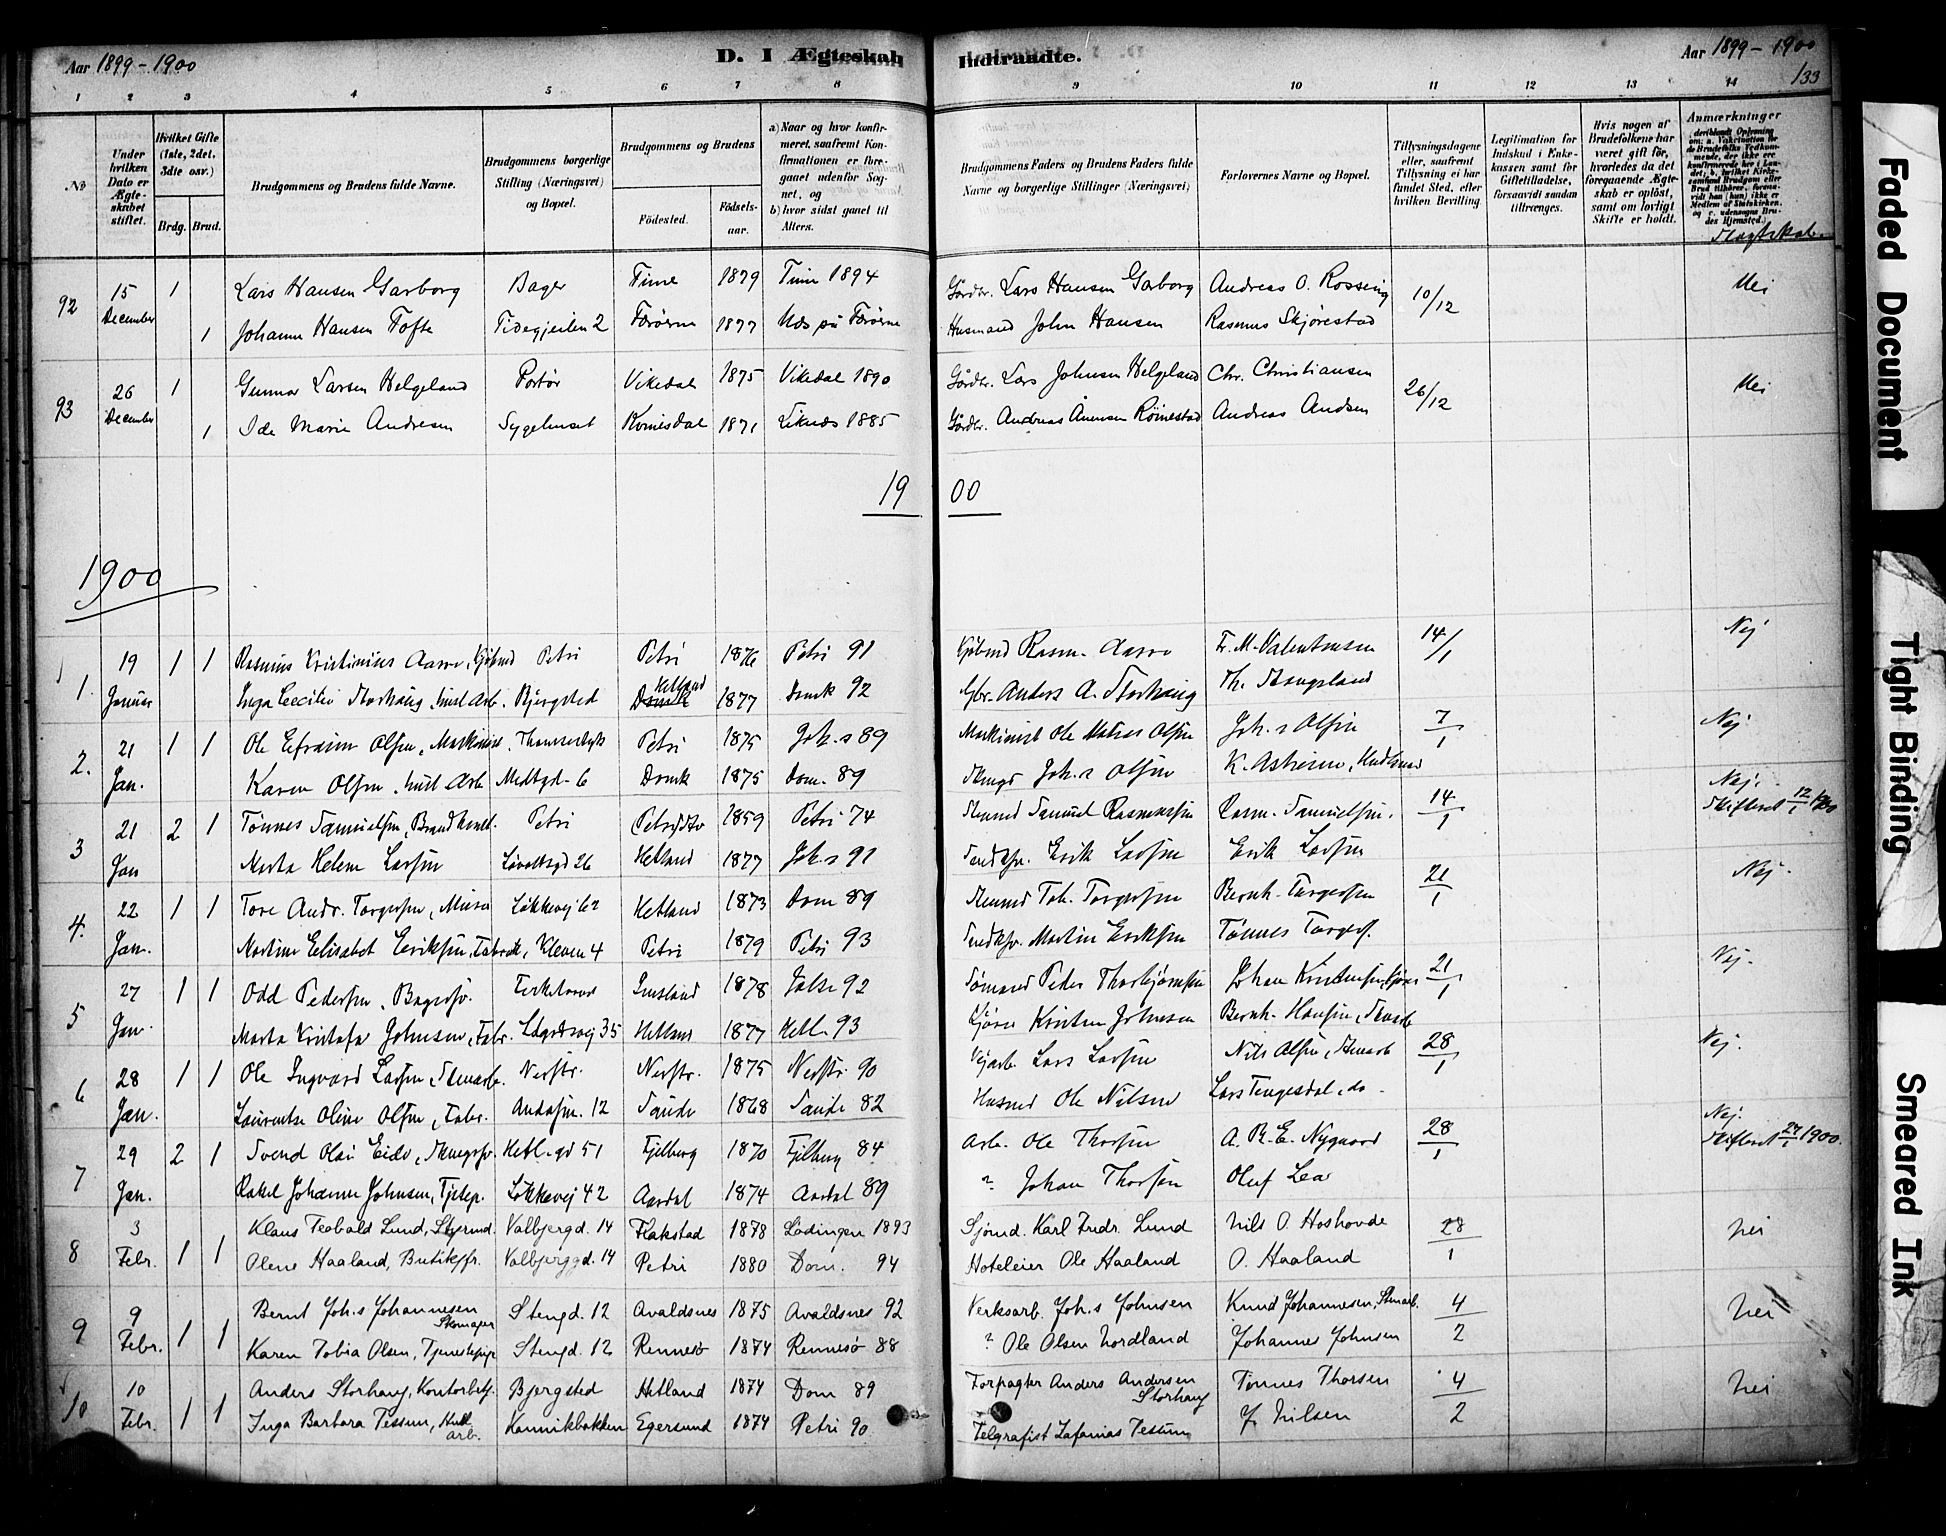 Aar 1899 - 1900
D. I Ægteskab Indtraadte.
Aar 1899 - 1900
133
1 2 3 4 5 6 7 8 9 10 11 12 13 14
No
Under hvilken Dato er Ægteskabet stiftet.
Hvilket Gifte (1ste, 2det, 3die osv.)
Brdg. Brud.
Brudgommens og Brudens fulde Navne.
Brudgommens borgerlige Stilling (Næringsvei) og Bopæl.
Brudgommens og Brudens
Födested.
Födsels-aar.
a) Naar og hvor konfirmeret, saafremt Konfirmationen er foregaaet udenfor Sognet, og
b) hvor sidst gaaet til Alters.
Brudgommens Faders og Brudens Faders fulde Navne og borgerlige Stillinger (Næringsvei)
Forlovernes Navne og Bopæl.
Tillysningsdagene eller, saafremt Tillysning ei har fundet Sted, efter hvilken Bevilling.
Legitimation for Indskud i Enkekassen samt for Giftetilladelse, forsaavidt saadan tiltrænges.
Hvis nogen af Brudefolkene har været gift för, hvorledes da det foregaaende Ægteskab er oplöst, samt om lovligt Skifte er holdt.
Anmærkninger
Slagtskab.
92 15 December 1 Lars Hansen Garborg Bager Time 1879 Time 1894 Gårdbr. Lars Hansen Garborg Andreas O. Rosseng 10/12 Nei
1 Johanne Hansen Tofte Tidegjeilen 2 Færøerne 1877 Næs på Færøerne Husmand John Hansen Rasmus Skjørestad
93 26 December 1 Gunnar Larsen Helgeland Portør Vikedal 1875 Vikedal 1890 Gårdbr. Lars Johnsen Helgeland Chr. Christiansen 26/12 Nei
1 Ida Marie Andresen Sygehuset Kvinesdal 1871 Liknæs 1885 Gårdbr. Andreas Rømestad Andreas Andsen
19 00
1900
1. 19 Januar 1 1 Rasmus Kristinius Aarre, Kjøbmd Petri Petri 1876 Petri 91 Kjøbmd Rasm. Aarre Fr. M. Valentinsen 14/1 Nej
Inga Cecilie Storhaug, husl Arb. Bjergsted Hetland 1877 Domk 92 Gbr. Anders A. Storhaug Th. Stangeland
2. 21 Jan. 1 1 Ole Efraim Olsen, Maskinist, Petri 1875 Joh.s 89 Maskinist Ole Olsen Joh.s Olsen 7/1 Nej
Karen Olsen, husl Arb Domk 1875 Dom. 89 Joh.s Olsen
3 21 Jan 2 1 Tönnes Samuelsen, Petri 1859 Petri 74 Samuel Rasmussen Rasm. Samuelsen. 14/1 Nej. Skifteret 12/1 1900
Marta Helene Larsen 26 Hetland 1877 Joh.s 91 Erik Larsen Erik Larsen
4. 22 Jan. 1 1 Tore Andr. Torgersen, Murer Løkkevej 62 Hetland 1873 Dom 89 Torgersen Bernh. Torgersen 21/1 Nej.
Martine Elisabet Eriksen, Fabrik, Kleven 4 Petri 1879 Petri 93 Martin Eriksen Tönnes Torgers.
5 27 Jan. 1 1 Odd Pedersen, Bagersv. Imsland 1878 Jelse 92 Tømmand Peder Thorbjörnsen Johan Kristensen 21/1 Nej.
Marta Kristofa Johnsen, Fabr. 35 Hetland 1877 Hetl. 93 Kjører Kristen Johnsen Bernh. Hansen, Stenarb
6 28 Jan. 1 1 Ole Ingvard Larsen, Stenarb. Nerstr. Nerstr. 1875 Nerstr. 90 Vejarb Lars Larsen Nils Olsen, Stenarb 28/1 Nej.
Laurentse Oline Olsen, Fabr. 12 Sande 1868 Sande 82 Husmd Ole Nilsen Lars Tengesdal, do.
7 29 Jan. 2 1 Svend Olai Eide, Hetl.gd 51 Fjelberg 1870 Fjelberg 84 Arb. Ole Thorsen A. B. E. Nygaard 28/1 Nej. Skifteret 24/1 1900.
Rakel Johanne Johnsen, Tjetep. Løkkevej 42 Aardal 1874 Aardal 89 ". Johan Thorsen Oluf Lea
8 3 Febr. 1 1 Klaus Teobald Lund, Styrmd. Valbjergd. 14 Flakstad 1878 Lødingen 1893 Sjömd. Karl Fredr. Lund Nils O. Hoshovde 28/1 nei
Olene Haaland, Butikfr. Valbjerggd. 14 Petri 1880 Dom. 94 Hoteleier Ole Haaland O. Haaland
9 9 Febr. 1 1 Bernt Joh.s Johannesen Skomager Stengd. 12 Avaldsnes 1875 Avaldsnes 92 Verksarb. Joh.s Johnsen Knud Johannesen, Stenarb. 4/2 nei
Karen Tobia Olsen, Tjenestepige Stengd. 12 Rennesö 1874 Rennesö 88 ? Ole Olsen Nordland Johannes Johnsen
10 10 Febr. 1 1 Anders Storhaug, Kontorbetj. Bjergsted Hetland 1874 Dom 89 Forpagter Anders Andersen Storhaug Tönnes Thorsen 4/2 nei
Inga Barbara Tessum, Husl. arb. Kannikbakken Egersund 1874 Petri 90 Telgrafist Zafanias Tessum J. Nilsen
Faded Document
Tight Binding
Smeared Ink